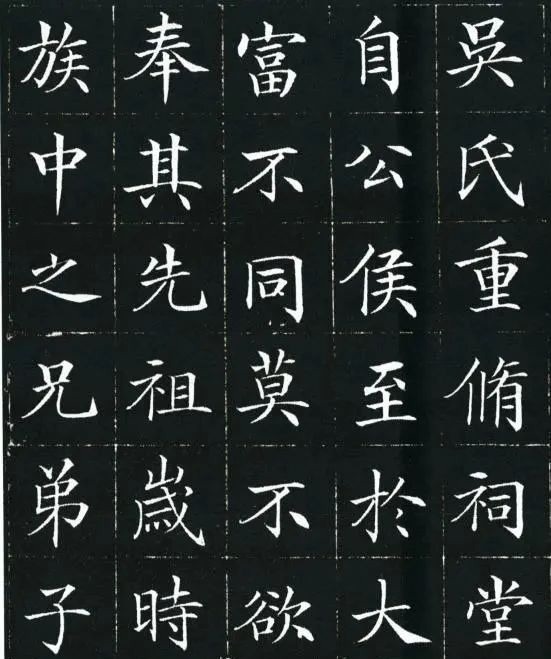 吳氏重脩祠堂
自公侯至於大
富不同莫不欲
奉其先祖歲時
族中之兄弟子